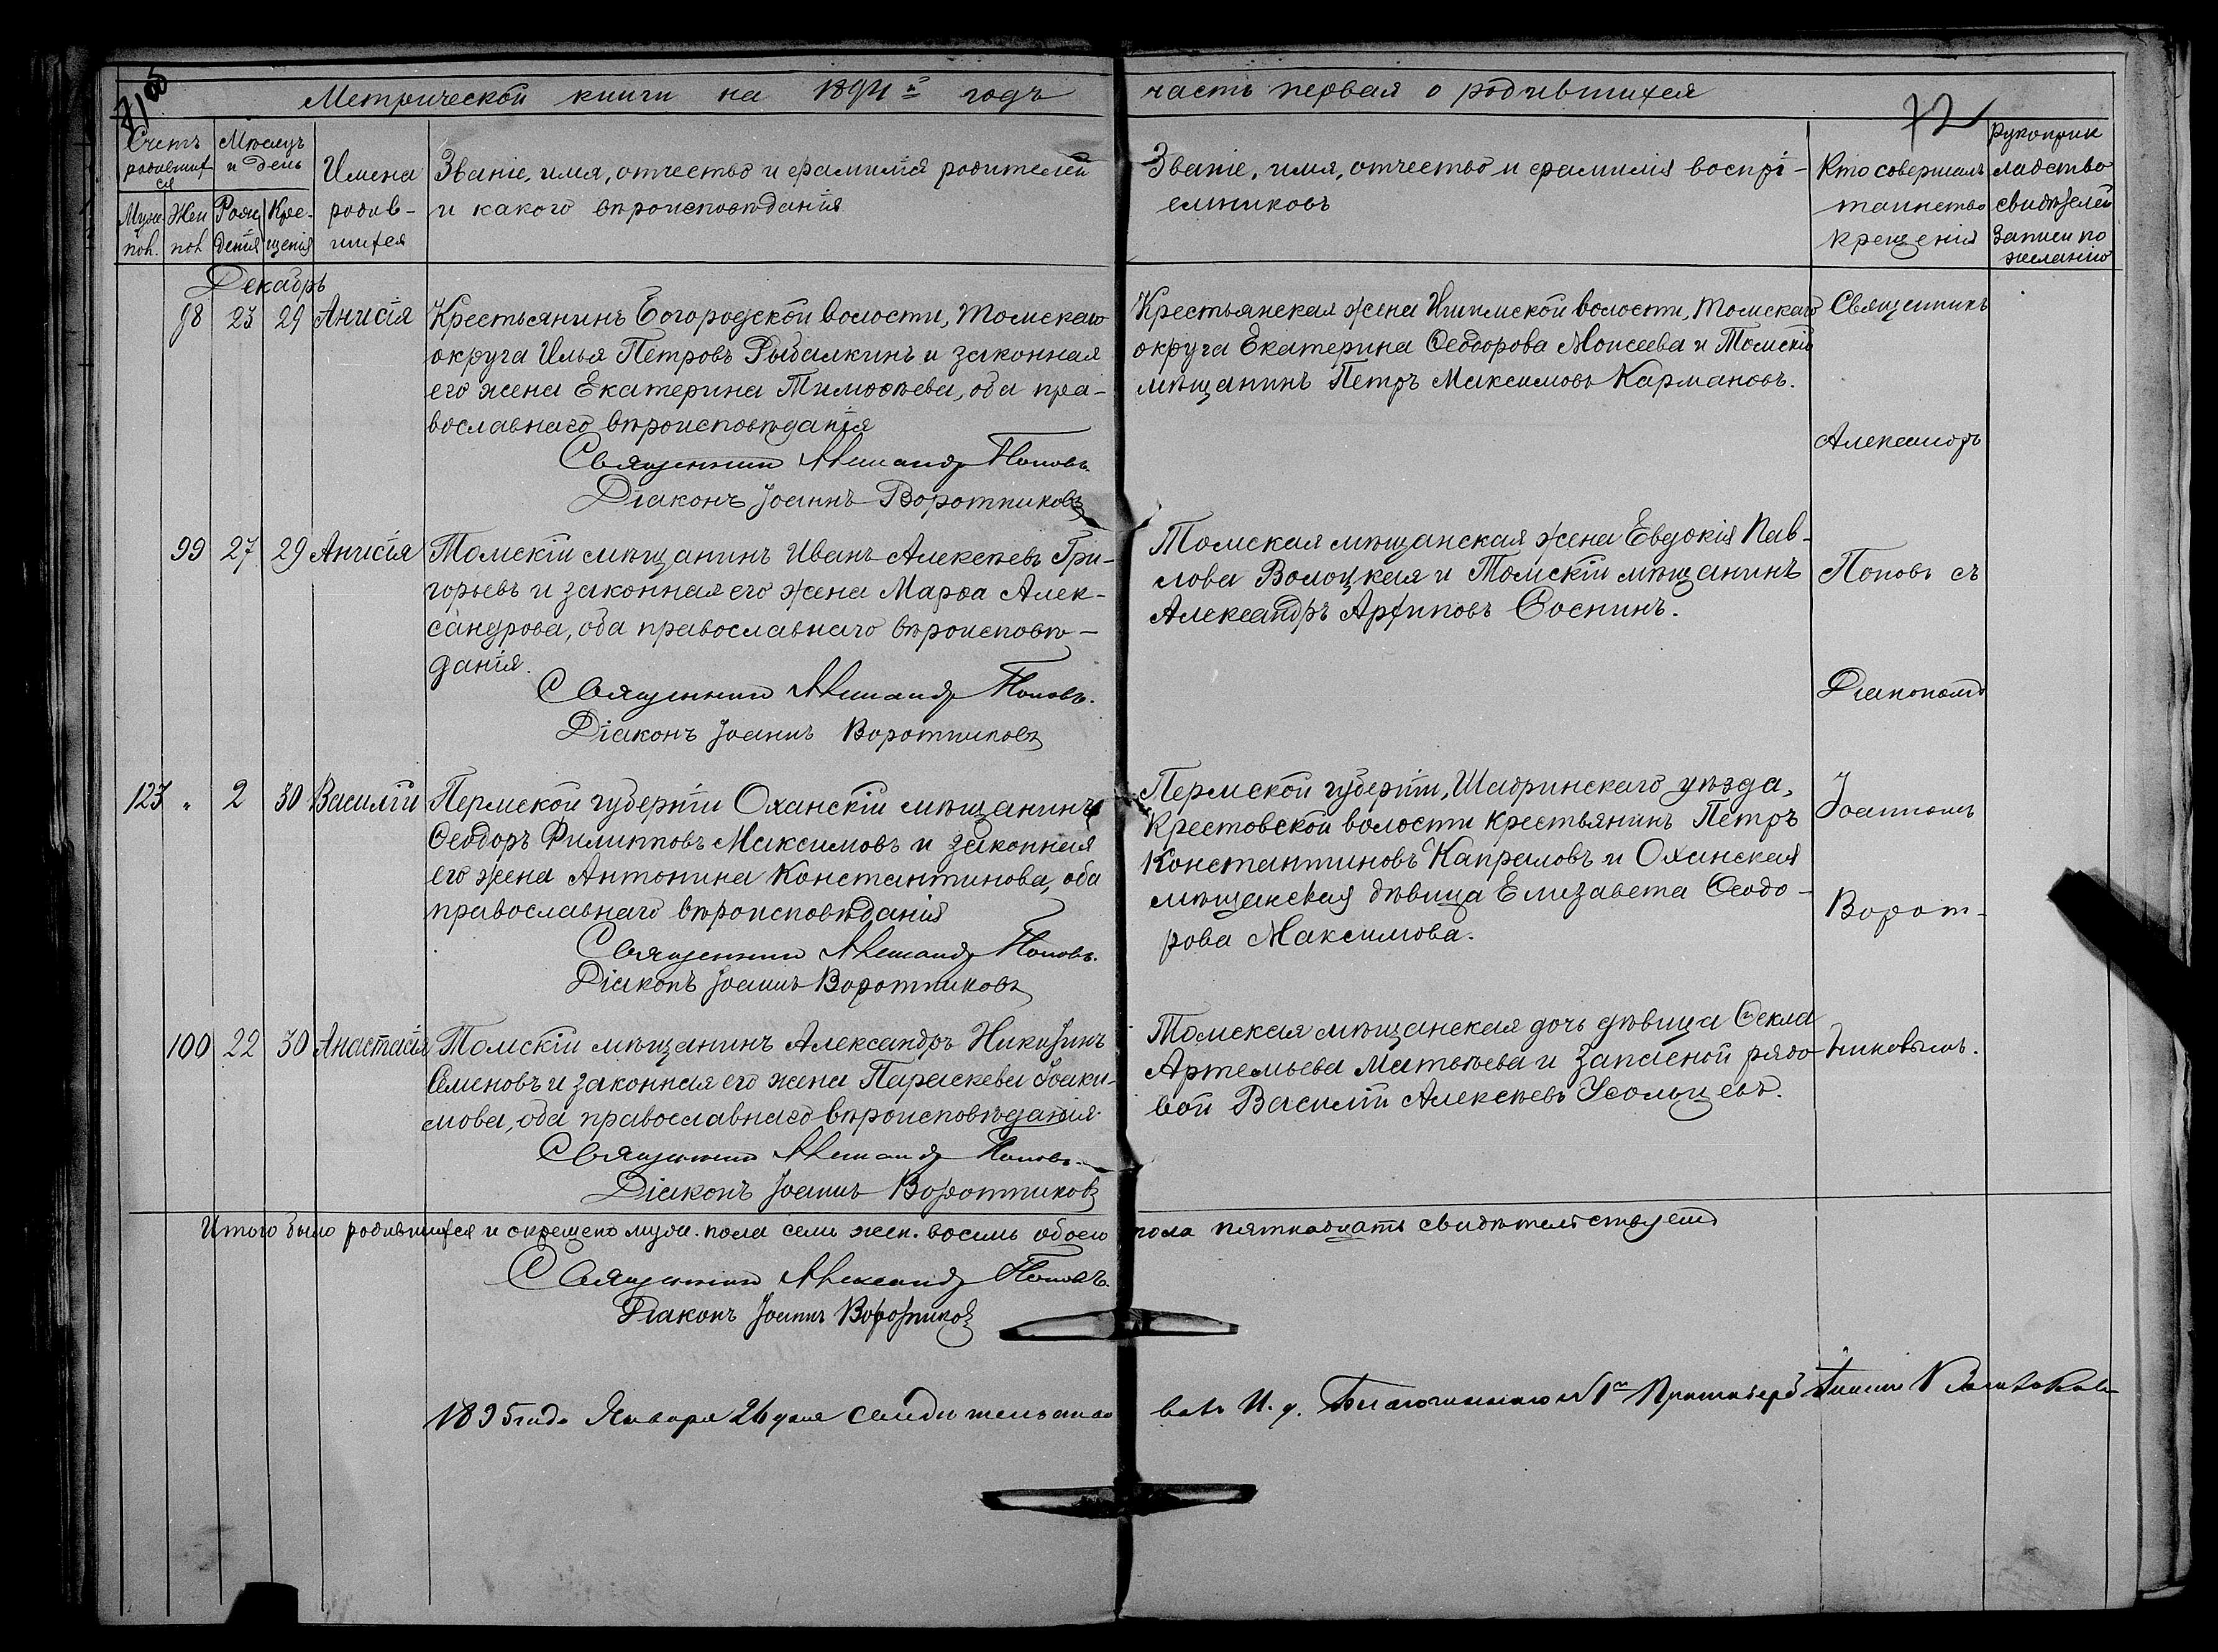 Метрической книги на 1894й годъ часть первая о родившихся
72
Счетъ родившихся
Мѣсяцъ и день
Муж. пол.
Жен. пол.
Рождения
Крещенія
Имена родившихся
Званіе, имя, отчество и фамилія родителей
и какого вѣроисповѣданія
Званіе, имя, отчество и фамилія воспрі-
емниковъ
Кто совершалъ
таинство
крещенія
Рукоприк
ладство
свидѣтелей
записи по
желанію
Декабрь
98 23 29 Анисія
Крестьянинъ Богородской волости, Томскаго
округа Илья Петровъ Рыбалкинъ и законная
его жена Екатерина Тимоѳѣева, оба пра-
вославнаго вѣроисповѣданія
Священникъ Александръ Поповъ.
Діаконъ Іоаннъ Воротниковъ
Крестьянская жена Ишимской волости, Томскаго
округа Екатерина Ѳеодорова Моисеева и Томскій
мѣщанинъ Петръ Максимовъ Кармановъ.
Священникъ
Александръ
99 27 29 Анисія
Томскій мѣщанинъ Иванъ Алексѣевъ Гри-
горьевъ и законная его жена Марѳа Алек-
сандрова, оба православнаго вѣроисповѣ-
данія.
Священникъ Александръ Поповъ.
Діаконъ Іоаннъ Воротниковъ
Томская мѣщанская жена Евдокія Пав-
лова Волоцкая и Томскій мѣщанинъ
Александръ Архиповъ Соснинъ.
Поповъ съ
Діакономъ
123 " 2 30 Василій
Пермской губерніи Оханскій мѣщанинъ
Ѳеодоръ Филипповъ Максимовъ и законная
его жена Антонина Константинова, оба
православнаго вѣроисповѣданія
Священникъ Александръ Поповъ.
Діаконъ Іоаннъ Воротниковъ
Пермской губерніи, Шадринскаго уѣзда,
Крестовской волости крестьянинъ Петръ
Константиновъ Капраловъ и Оханская
мѣщанская дѣвица Елизавета Ѳеодо-
рова Максимова.
Іоанномъ
Ворот-
100 22 30 Анастасія
Томскій мѣщанинъ Александръ Никитинъ
Семеновъ и законная его жена Параскева Іоаки-
мова, оба православнаго вѣроисповѣданія.
Священникъ Александръ Поповъ.
Діаконъ Іоаннъ Воротниковъ
Томская мѣщанская дочь дѣвица Ѳекла
Артемьева Матвѣева и запасной рядо
вой Василій Алексѣевъ Усольцевъ.
никовымъ.
Итого было родившихся и окрещено муж. пола семь жен. восемь обоего пола пятнадцать свидѣтельствуемъ
Священникъ Александръ Поповъ.
Діаконъ Іоаннъ Воротниковъ
1895 года Января 26 дня свидѣтельство валъ И. д. Благочиннаго № 1го